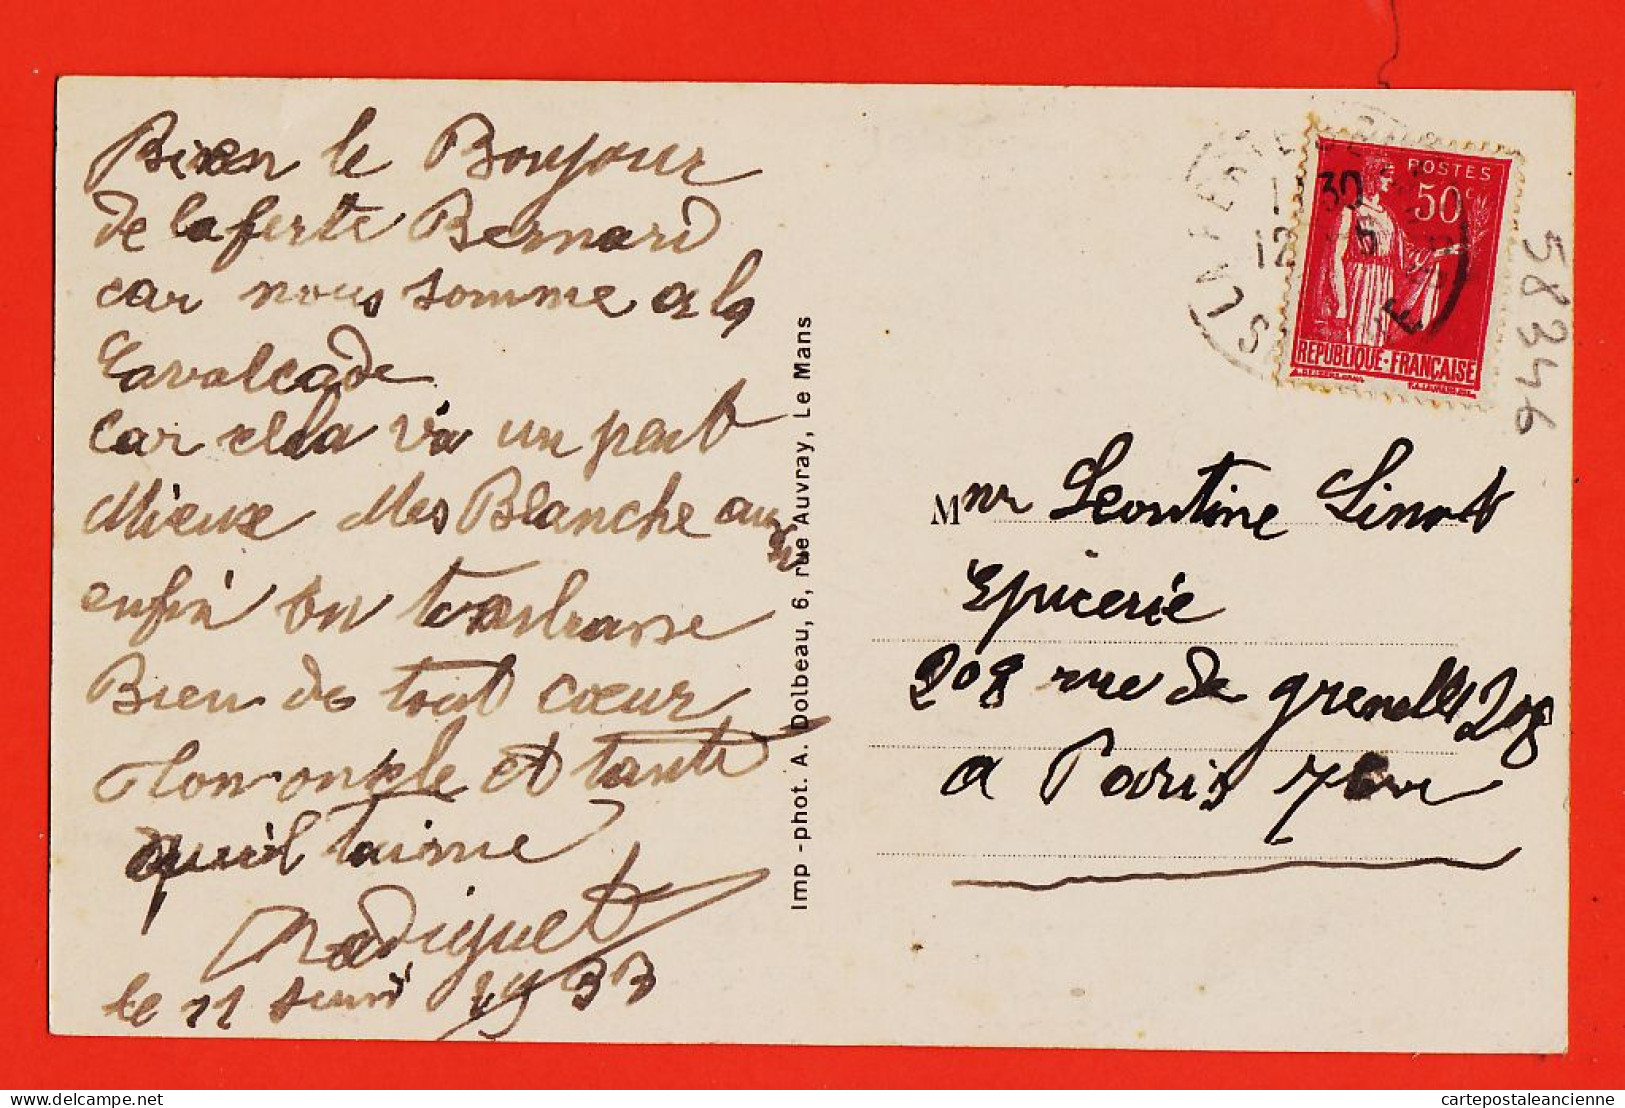 Bien le Bonjour
de la ferte Bernard
car nous somme a la
Cavalcade
car cela va un peut
Mieux Mes Blanche aussi
enfin on
Bien de tout cœur
Ton oncle et tante
qui taime
Radiguet
le 11 Juin 1933
Imp - phot. A. Dolbeau, 6, rue Auvray, Le Mans
POSTES
50c
REPUBLIQUE-FRANÇAISE
LA FERTE BERNARD
30
12
SARTHE
58346
Mmr Leontine Linot
Epicerie
208 rue de grenelle 208
a Paris 7eme
cartepostaleancienne
delcampe.net